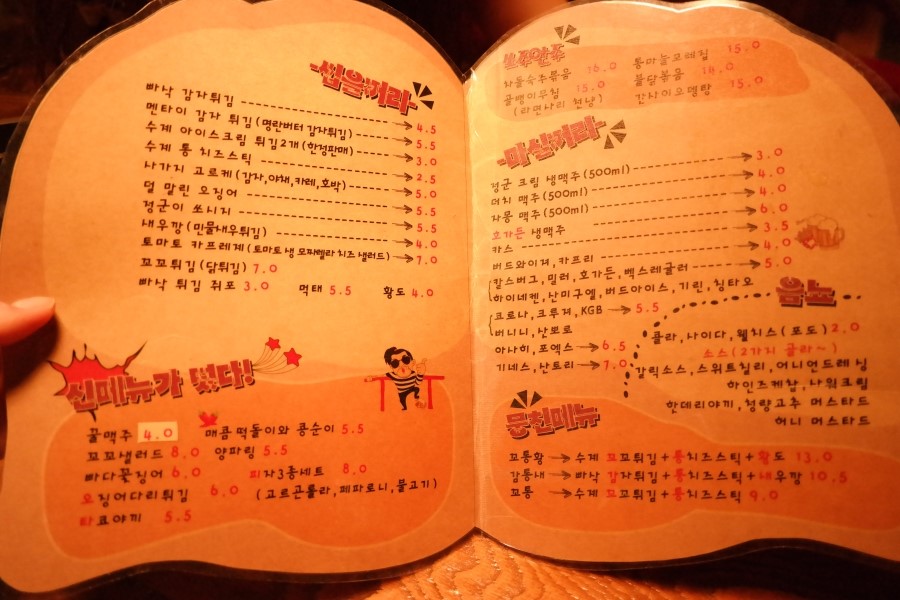 -씹을꺼리-
빠삭 감자튀김 4.5
멘타이 감자 튀김(명란버터 감자튀김) 5.5
수제 아이스크림 튀김2개(한정판매) 3.0
수제 통 치즈스틱 2.5
나가지 고로케(감자,야채,카레,호박) 5.0
덜 말린 오징어 5.5
정군이 쏘시지 5.5
새우깡(민물새우튀김) 4.0
토마토 카프레제(토마토 생 모짜렐라 치즈 샐러드) 7.0
꼬꼬튀김(닭튀김) 7.0
빠삭 튀김 쥐포 3.0 먹태 5.5 황도 4.0
신메뉴가 떴다!
꿀맥주 4.0 매콤 떡돌이와 콩순이 5.5
꼬꼬샐러드 8.0 양파링 5.5
빠다꽃징어 6.0 피자3종세트 8.0
오징어다리튀김 6.0 (고르곤졸라,페파로니,불고기)
타코야끼 5.5
쏘주안주
차돌숙주볶음 16.0 통마늘고래집 15.0
골뱅이무침 15.0 불닭볶음 14.0
(라면사리 첨가) 간사이오뎅탕 15.0
-마실꺼리-
정군 크림 생맥주(500ml) 3.0
더치 맥주(500ml) 4.0
자몽 맥주(500ml) 4.0
호가든 생맥주 6.0
카스 3.5
버드와이져, 카프리 4.0
칼스버그, 밀러, 호가든, 벡스레귤러 5.0
하이네켄, 산미구엘, 버드아이스, 기린, 칭타오
코로나, 크루져, KGB 5.5
버니니, 삿뽀로
아사히, 포엑스 6.5
기네스, 산토리 7.0
음뇨
콜라, 사이다, 웰치스(포도)2.0
소스(2가지 골라~)
갈릭소스, 스위트칠리, 어니언드레싱
하인즈케찹, 사워크림
한데리야끼, 청량고추 머스타드
허니 머스타드
문천메뉴
꼬통황 수제 꼬꼬튀김+통치즈스틱+황도 13.0
감통새 빠삭 감자튀김+통치즈스틱+새우깡 10.5
꼬통 수제 꼬꼬튀김+통치즈스틱 9.0